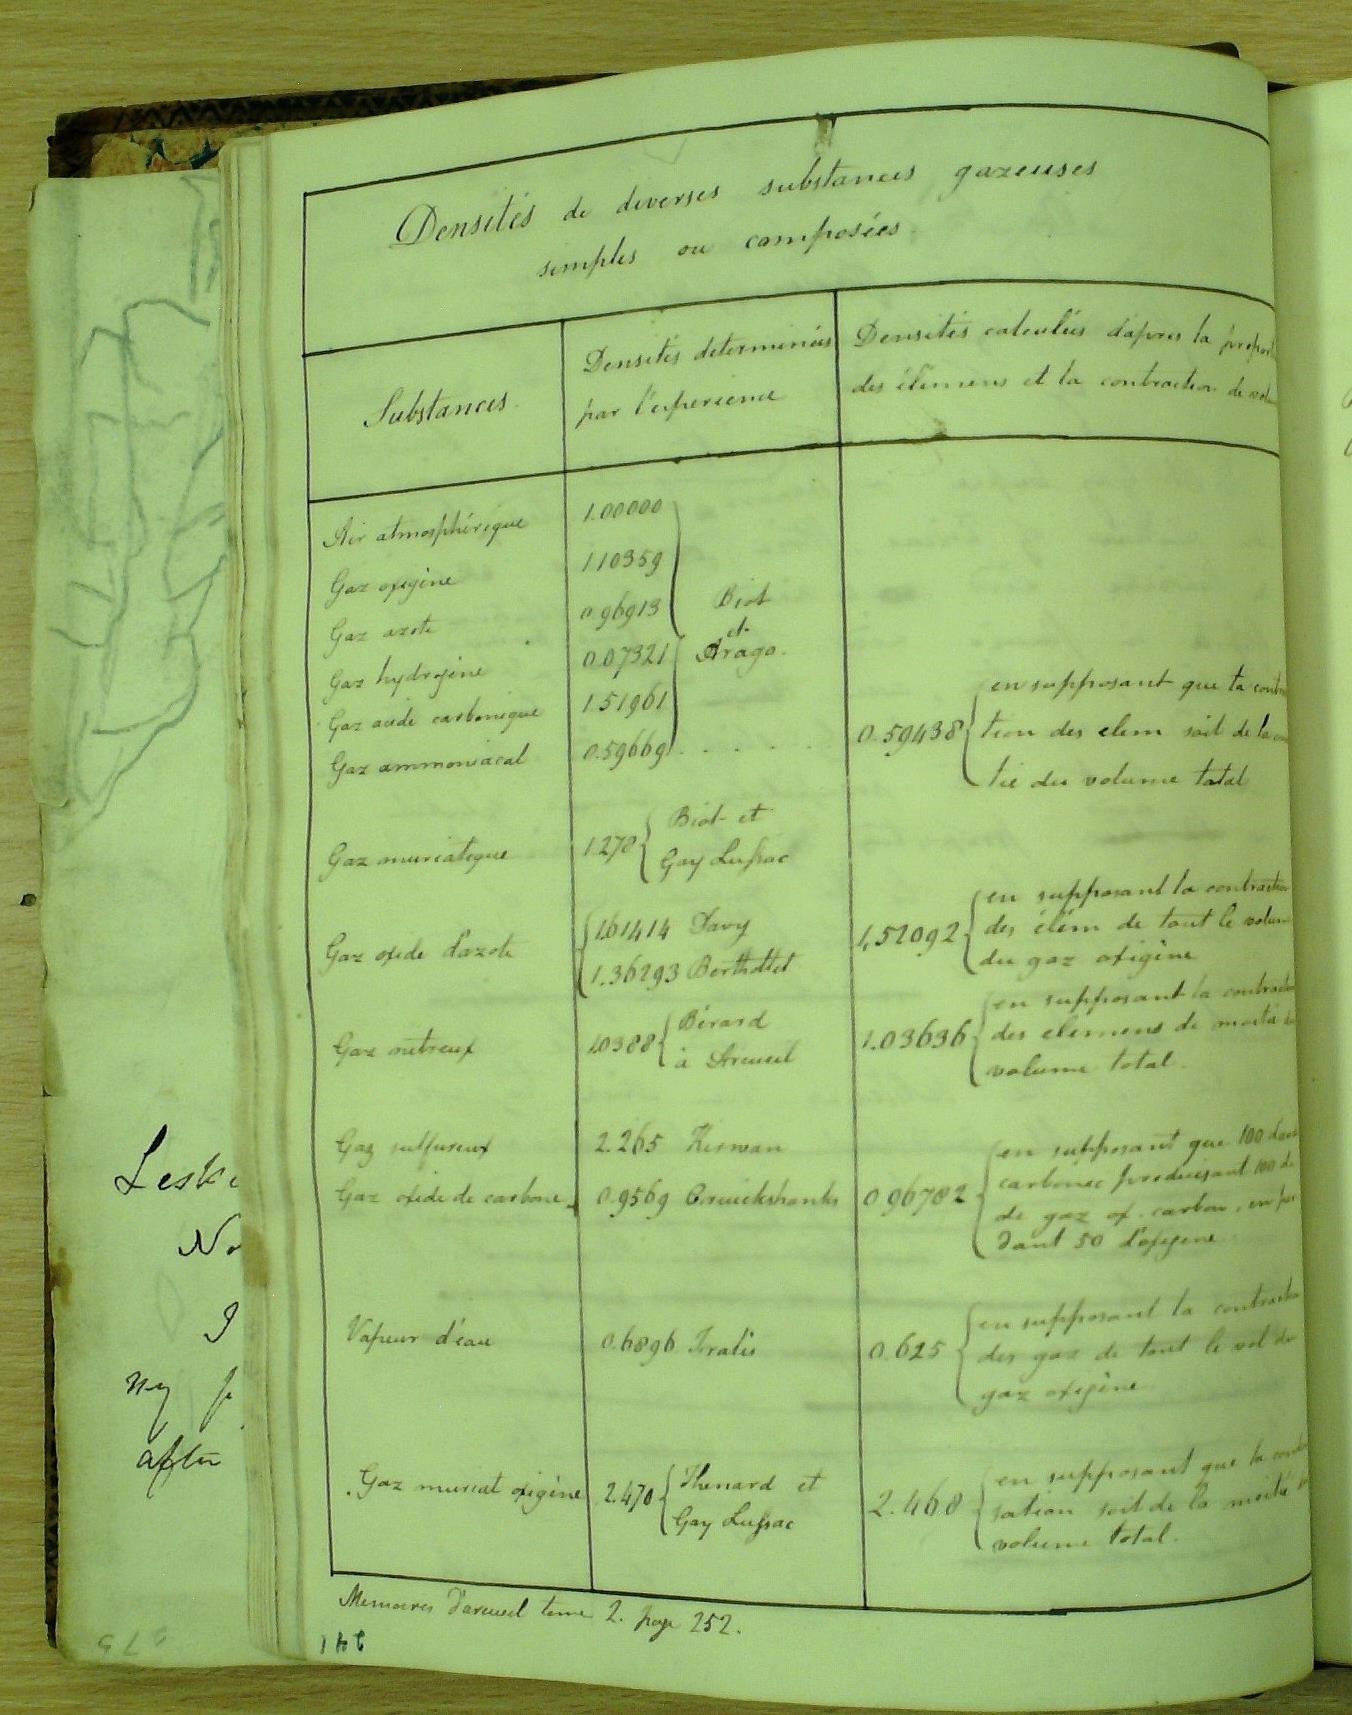 Densités de diverses substances gazeuses
simples ou composées
Substances.
Densités determinées
par l'experience
Densités calculées d'apres la
des élémens et la contraction de
Air atmosphérique 1.00000
Gaz oxigène 1.10359
Gaz azote 0.96913
Gaz hydrogène 0.07321
Gaz acide carbonique 1.51961
Biot
et
Arago.
Gaz ammoniacal 0.59669 . . . . . 0.59438
en supposant que la
tion des elem soit de la
tié du volume total
Gaz muriatique 1.278
Biot et
Gay Lussac
Gaz oxide d'azote
1.61414 Davy
1.36293 Berthollet
1,52092
en supposant la contraction
des élém de tout le volume
du gaz oxigène
Gaz nitreux 1.0388
Bérard
à Arcueil
1.03636
en supposant la
des elemens de moitié
volume total.
Gaz sulfureux 2.265 Kirwan
Gaz oxide de carbone 0.9569 Cruickshanks 0.96782
en supposant que 100
carbonec produisant 100 de
de gaz ox. carbon. en
dant 50 d'oxigene
Vapeur d'eau 0.6896 Tralis 0.625
en supposant la
des gaz de tout le vol du
gaz oxigène
Gaz muriat oxigène 2.470
Thenard et
Gay Lussac
2.468
en supposant que la
sation soit de la moitié
volume total.
Memoires d'arcueil tome 2. page 252.
241
No
I
my
after